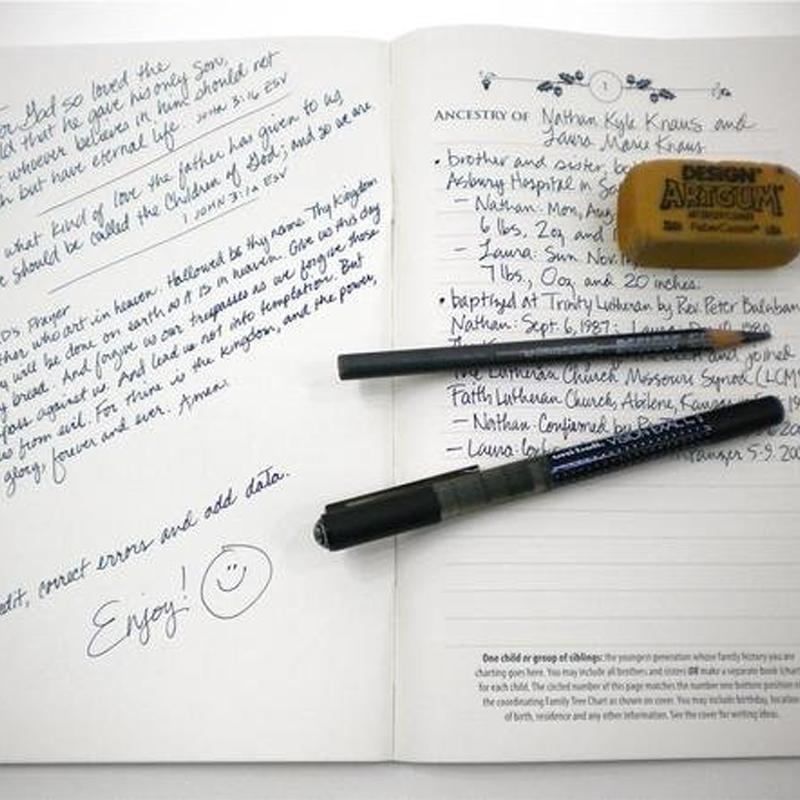 or God so loved the
ld that he gave his only Son,
t whoever believes in him should not
h but have eternal life. JOHN 3:16 ESV
what kind of love the father has given to us,
e should be called the Children of God; and so we are.
1 JOHN 3:1a ESV
D's Prayer
ther who art in heaven. Hallowed be thy name. Thy Kingdom
y will be done on earth as it is in heaven. Give us this day
y bread. And forgive us our trespasses as we forgive those
pass against us. And lead us not into temptation. But
us from evil. For thine is the kingdom, and the power,
glory, forever and ever. Amen.
edit, correct errors and add data.
Enjoy!
1
ANCESTRY OF Nathan Kyle Kraus and
Laura Marie Kraus
• brother and sister,
Asbury Hospital in
– Nathan: Mon, Aug
6 lbs, 2oz and
– Laura: Sun Nov.
7 lbs, 0oz and 20 inches.
• baptized at Trinity Lutheran by Rev. Peter Burnban
Nathan: Sept. 6, 1987;
and joined
The Lutheran Church Missouri Synod (LCM
Faith Lutheran Church, Abilene,
– Nathan: Confirmed by
– Laura: 5-9-200
DESIGN
ARTGUM
FaberCastell
VISION
One child or group of siblings: the youngest generation whose family history you are
charting goes here. You may include all brothers and sisters OR make a separate book (chart
for each child. The circled number of this page matches the number one bottom position o
the coordinating Family Tree Chart as shown on cover. You may include birthday, location
of birth, residence and any other information. See the cover for writing ideas.